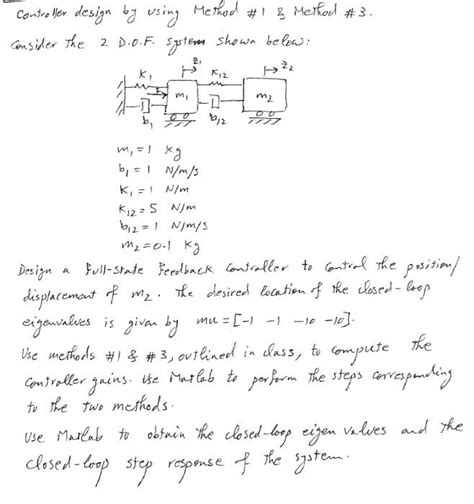 Controller design by using Method #1 & Method #3.
Consider the 2 D.O.F. system shown below:
z1 z2
K1 K12
F m1 m2
b1 b12
m1 = 1 Kg
b1 = 1 N/m/s
K1 = 1 N/m
K12 = 5 N/m
b12 = 1 N/m/s
m2 = 0.1 Kg
Design a Full-State Feedback Controller to control the position/
displacement of m2. The desired location of the closed-loop
eigenvalues is given by mu = [-1 -1 -10 -10].
Use methods #1 & #3, outlined in class, to compute the
controller gains. Use Matlab to perform the steps corresponding
to the two methods.
Use Matlab to obtain the closed-loop eigen values and the
closed-loop step response of the system.